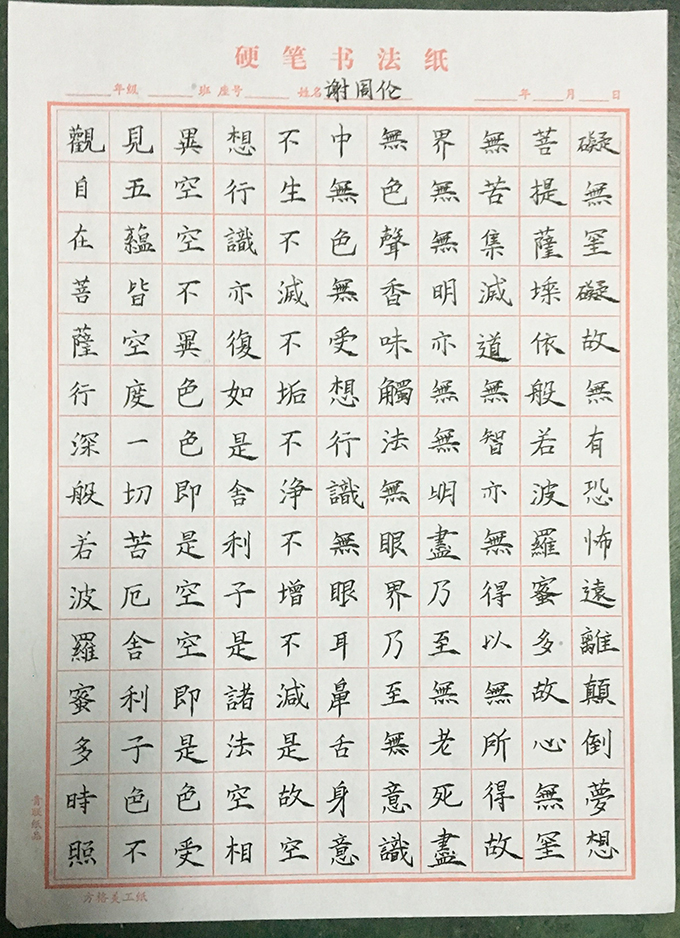 硬笔书法纸
年级 班 座号 姓名 谢周伦 年 月 日
觀自在菩薩行深般若波羅蜜多時照
見五蘊皆空度一切苦厄舍利子色不
異空空不異色色即是空空即是色受
想行識亦復如是舍利子是諸法空相
不生不滅不垢不淨不增不減是故空
中無色無受想行識無眼耳鼻舌身意
無色聲香味觸法無眼界乃至無意識
界無無明亦無無明盡乃至無老死盡
無苦集滅道無智亦無得以無所得故
菩提薩埵依般若波羅蜜多故心無罣
礙無罣礙故無有恐怖遠離顛倒夢想
方格美工纸